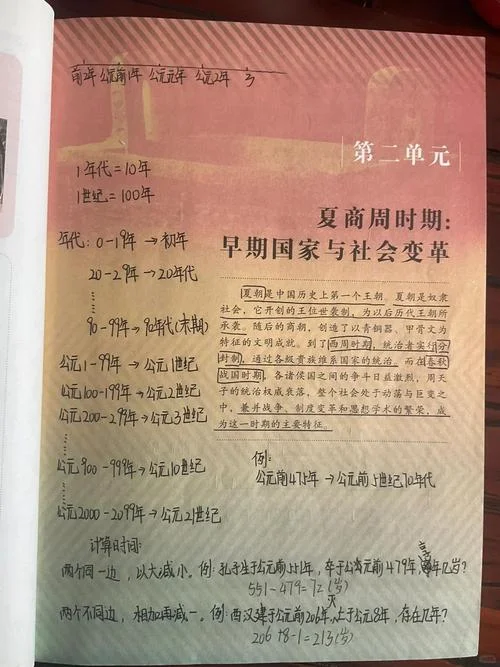 前2年 公元前1年 公元元年 公元2年 3
第二单元
1年代=10年
1世纪=100年
夏商周时期:
早期国家与社会变革
年代: 0-19年→初年
20-29年→20年代
……
90-99年→90年代(末期)
公元1-99年→公元1世纪
公元100-199年→公元2世纪
公元200-299年→公元3世纪
……
公元900-999年→公元10世纪
公元2000-2099年→公元21世纪
夏朝是中国历史上第一个王朝。夏朝是奴隶
社会,它开创的王位世袭制,为以后历代王朝所
承袭。随后的商朝,创造了以青铜器、甲骨文为
特征的文明成就。到了西周时期,统治者实行分
封制,通过各级贵族维系国家的统治。而在春秋
战国时期,各诸侯国之间的争斗日益激烈,周天
子的统治权威衰落,整个社会处于动荡与巨变之
中,兼并战争、制度变革和思想学术的繁荣,成
为这一时期的主要特征。
例:
公元前475年→公元前5世纪70年代
计算时间:
两个同一边,以大减小。例:孔子生于公元前551年,卒于公元前479年,享年几岁?
551-479=72(岁)
两个不同边,相加再减一。例:西汉建于公元前206年,亡于公元8年,存在几年?
206+8-1=213(岁)